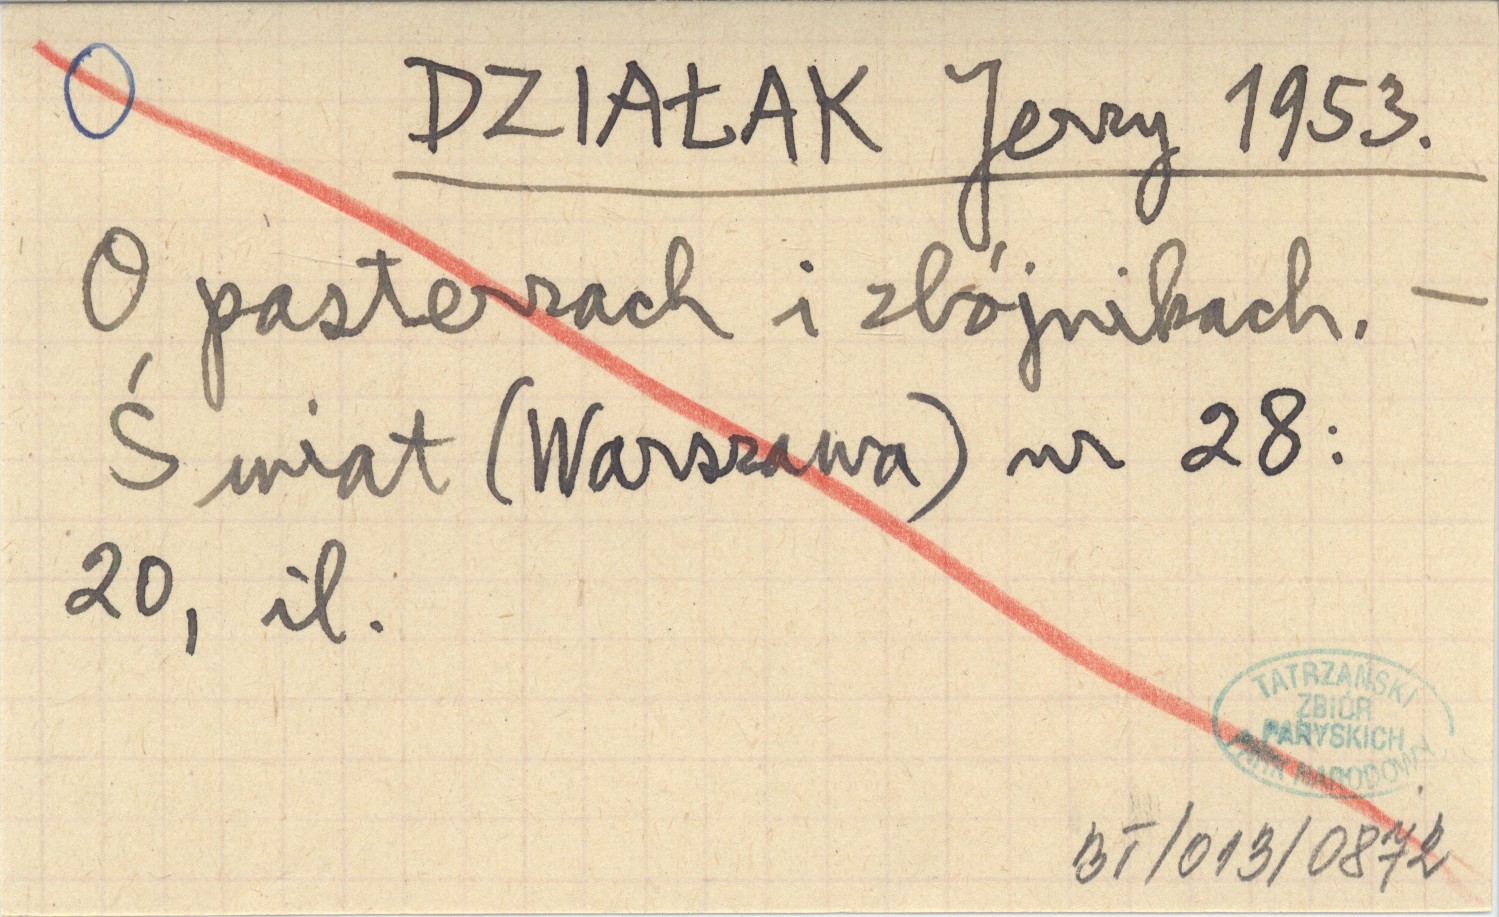 DZIAŁAK Jerzy 1953.
O pasterzach i zbójnikach. —
Świat (Warszawa) nr 28:
20, il.
TATRZAŃSKI
ZBIÓR
PARYSKICH
PARK NARODOWY
BT/013/0872